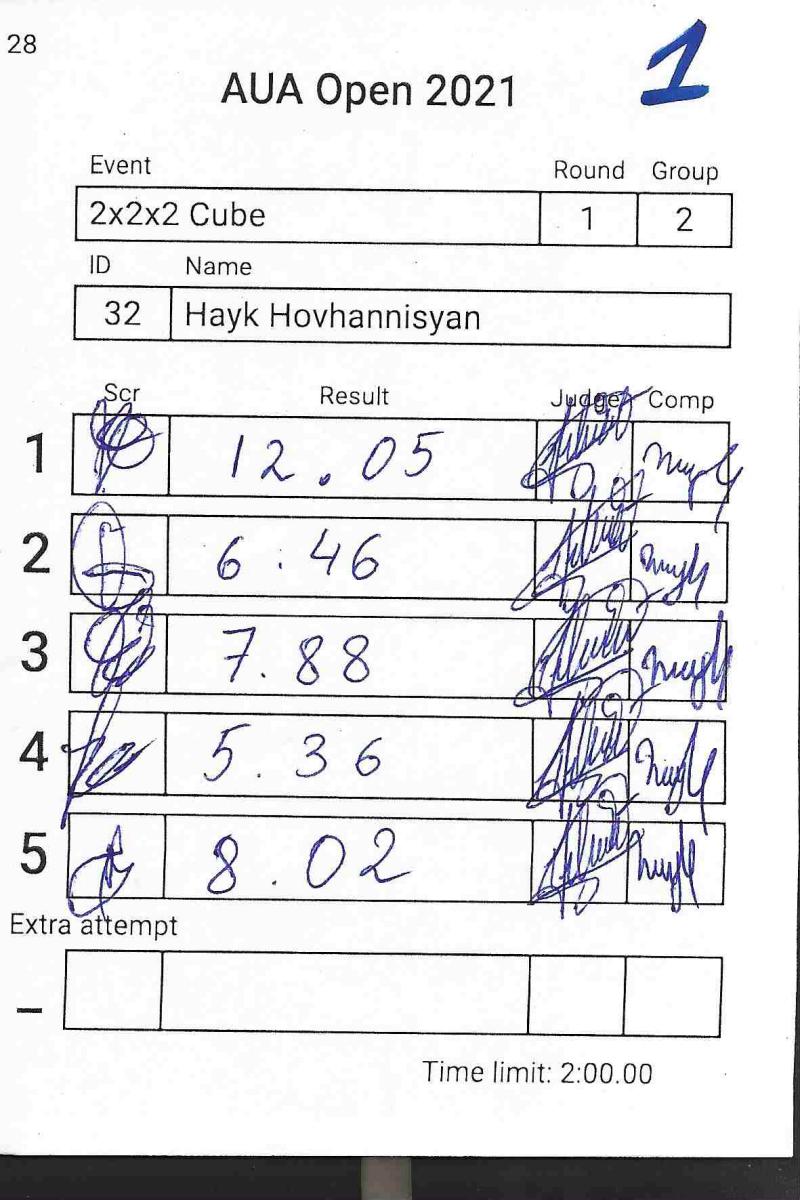 28
1
AUA Open 2021
Event Round Group
2x2x2 Cube 1 2
ID Name
32 Hayk Hovhannisyan
Scr Result Judge Comp
1 12.05
2 6.46
3 7.88
4 5.36
5 8.02
Extra attempt
–
Time limit: 2:00.00